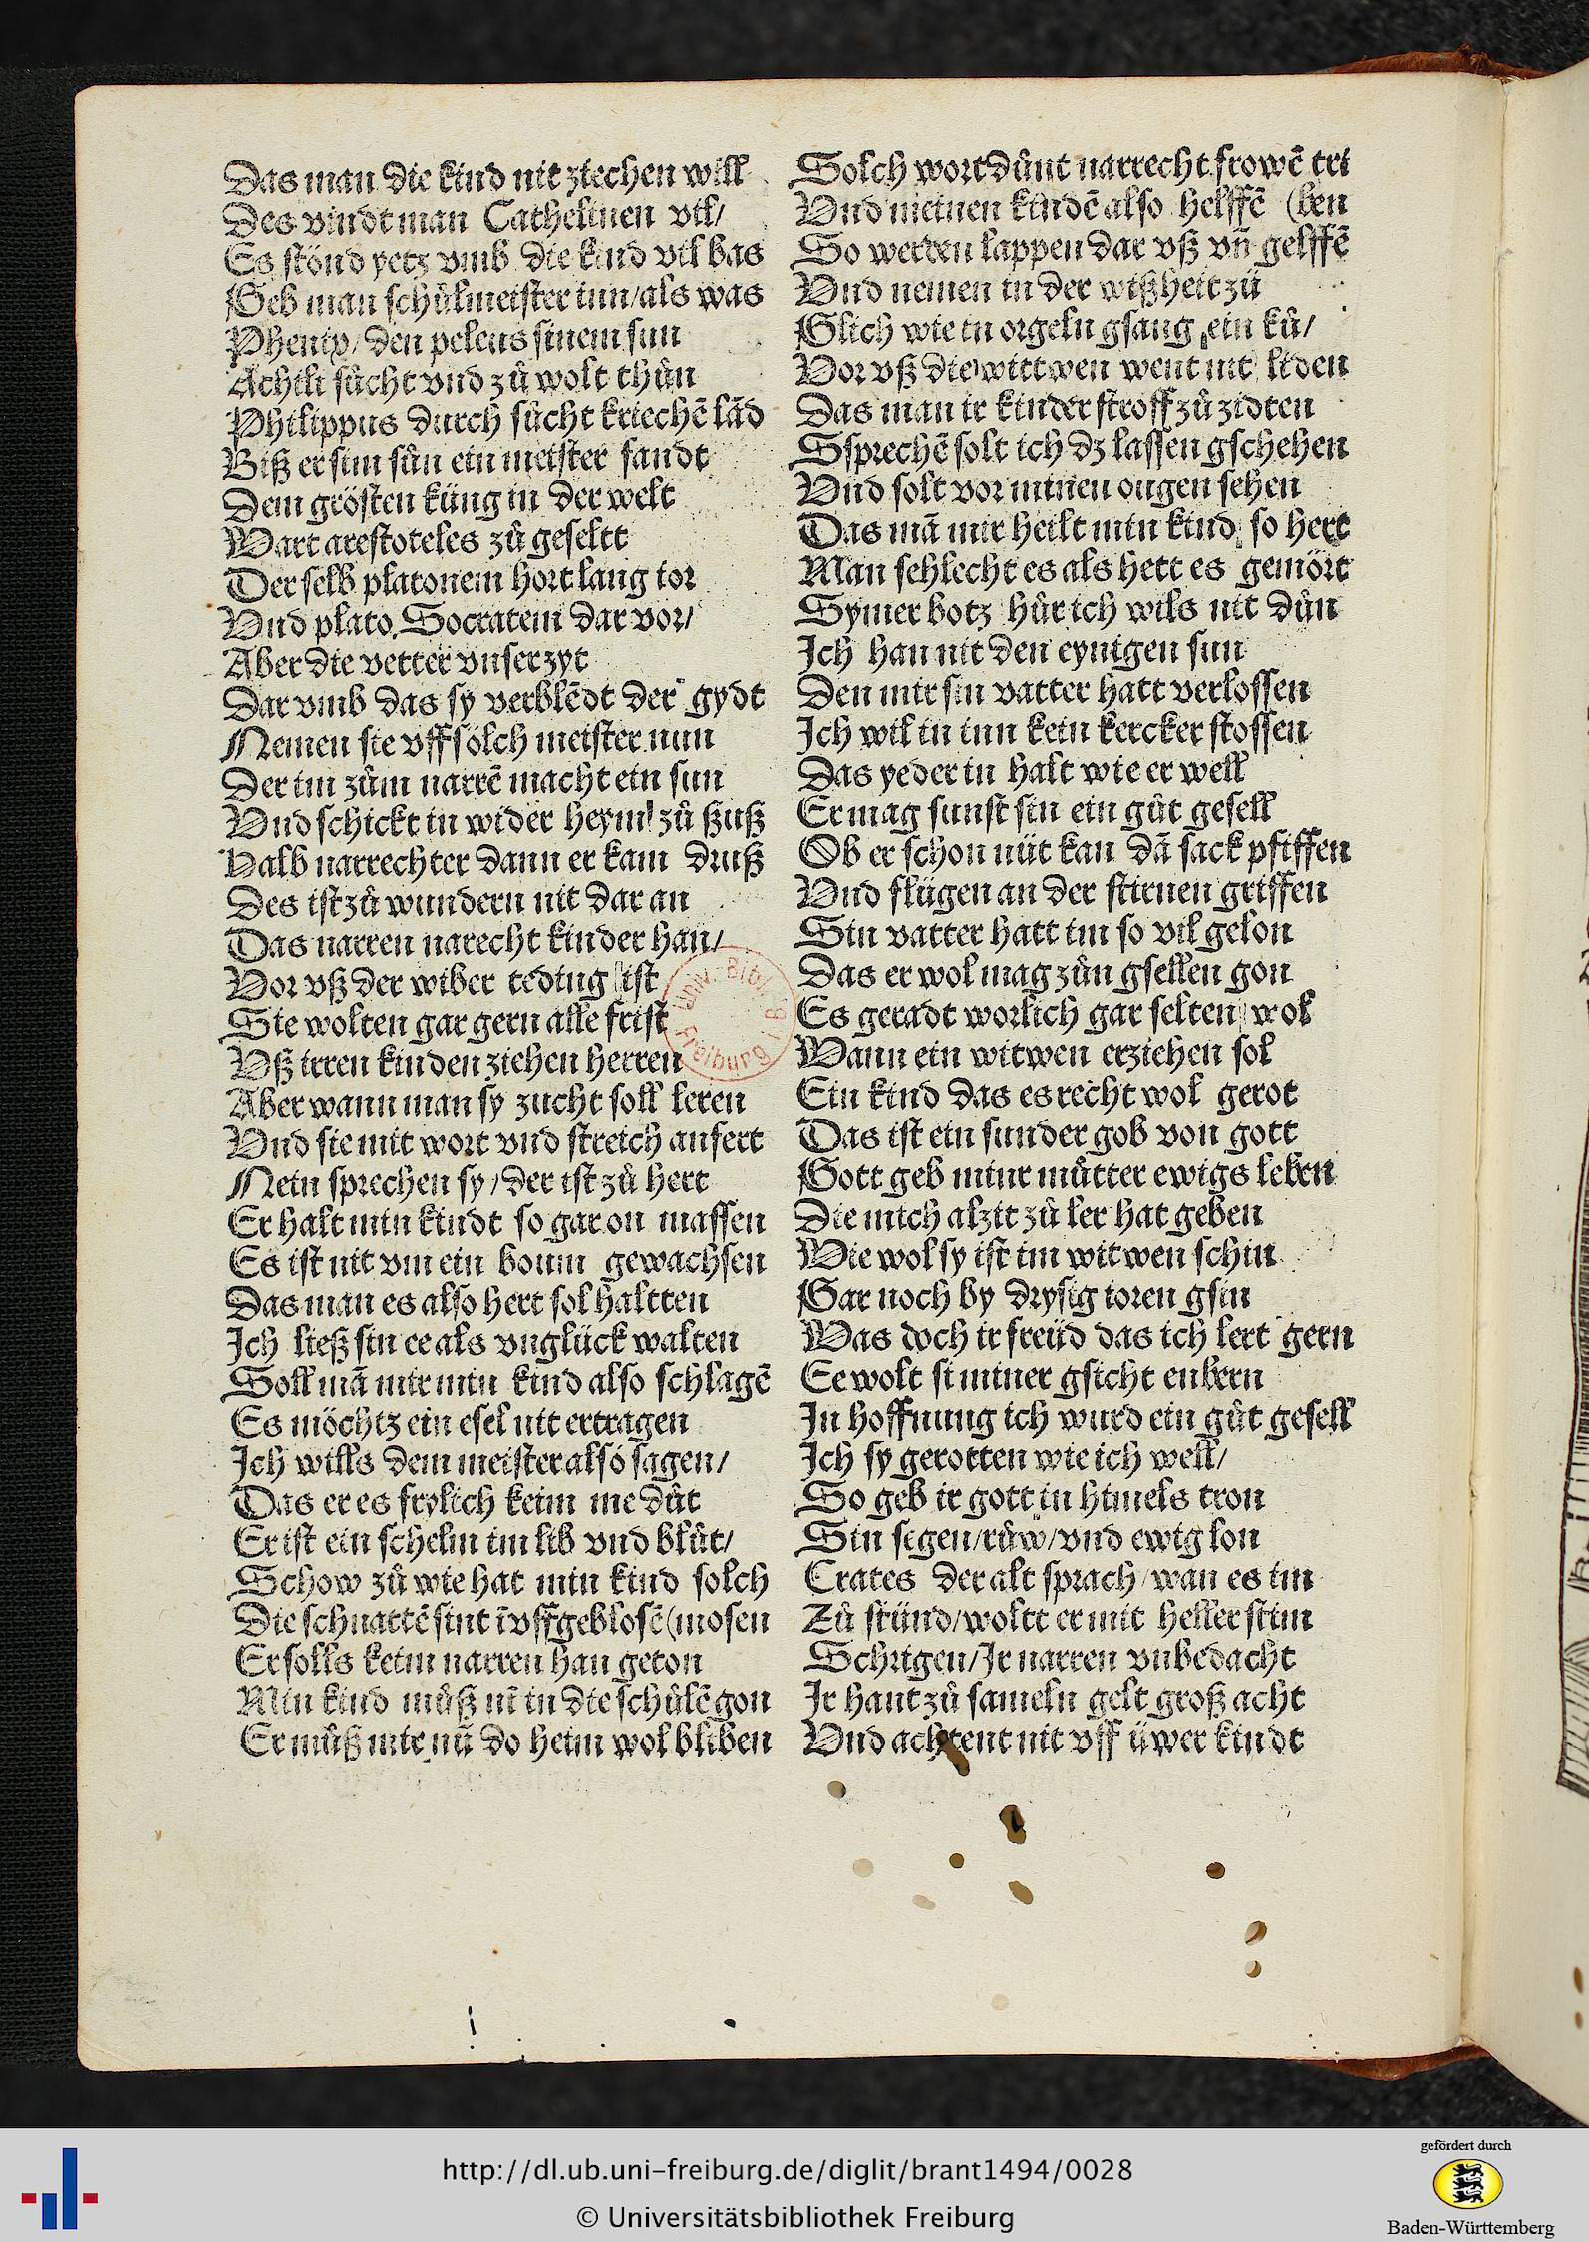 Das man die kind nit ziechen will
Des vindt man Cathelinen vil/
Es stönd yetz vmb die kind vil bas
Geb man schůlmeister inn/als was
Phenix/den peleus sinem sun
Achili sůcht vnd zů wolt thůn
Philippus durch sůcht kriechē lād
Biß er sim sůn ein meister fandt
Dem grösten küng in der welt
Wart arestoteles zů geseltt
Der selb platonem hort lang ior
Vnd plato Socratem dar vor/
Aber die vetter vnser zyt
Dar vmb das sy verblēdt der gydt
Nemen sie vff sölch meister nun
Der im zům narrē macht ein sun
Vnd schickt in wider heym zů ßuß
Halb narrechter dann er kam druß
Des ist zů wundern nit dar an
Das narren narecht kinder han/
Vor vß der wiber teding ist
Sie wolten gar gern alle frist
Vß irren kinden ziehen herren
Aber wann man sy zucht soll leren
Vnd sie mit wort vnd streich anfert
Nein sprechen sy/der ist zů hert
Er halt min kindt so gar on massen
Es ist nit vm ein boum gewachsen
Das man es also hert sol haltten
Ich ließ sin ee als vnglück walten
Soll mā mir min kind also schlagē
Es möchtz ein esel nit ertragen
Ich wills dem meister also sagen/
Das er es frylich keim me důt
Er ist ein schelm im lib vnd blůt/
Schow zů wie hat min kind solch
Die schnattē sint ī vffgeblosē (mosen
Er solls keim narren han geton
Min kind můß nī in die schůlē gon
Er můß mir nū do heim wol bliben
Solch wort důnt narrecht frowē tri
Vnd meinen kindē also helffē (ben
So werden lappen dar vß vñ gelffē
Vnd nemen in der wißheit zů
Glich wie in orgeln gsang ein ků/
Vor vß die wittwen went nit liden
Das man ir kinder stroff zů zidten
Ssprechē solt ich dz lassen gschehen
Vnd solt vor minen ougen sehen
Das mā mir heilt min kind so hert
Man schlecht es als hett es gemört
Symer botz hůr ich wils nit důn
Ich han nit den eynigen sun
Den mir sin vatter hatt verlossen
Ich wil in inn kein kercker stossen
Das yeder in halt wie er well
Er mag sunst sin ein gůt gesell
Ob er schon nüt kan dā sack pfiffen
Vnd flügen an der stirnen griffen
Sin vatter hatt im so vil gelon
Das er wol mag zůn gsellen gon
Es geradt worlich gar selten wol
Wann ein witwen erziehen sol
Ein kind das es recht wol gerot
Das ist ein sunder gob von gott
Gott geb minr můtter ewigs leben
Die mich alzit zů ler hat geben
Wie wol sy ist im witwen schin
Gar noch by drysig ioren gsin
Was doch ir freüd das ich lert gern
Ee wolt si miner gsicht enbern
In hoffnung ich wurd ein gůt gesell
Ich sy gerotten wie ich well/
So geb ir gott in himels tron
Sin segen/růw/vnd ewig lon
Crates der alt sprach/wan es im
Zů stünd/woltt er mit heller stim
Schrigen/Ir narren vnbedacht
Ir hant zů sameln gelt groß acht
Vnd achtent nit vff üwer kindt
Univ. Bibl.
Freiburg i. B.
http://dl.ub.uni-freiburg.de/diglit/brant1494/0028
© Universitätsbibliothek Freiburg
gefördert durch
Baden-Württemberg